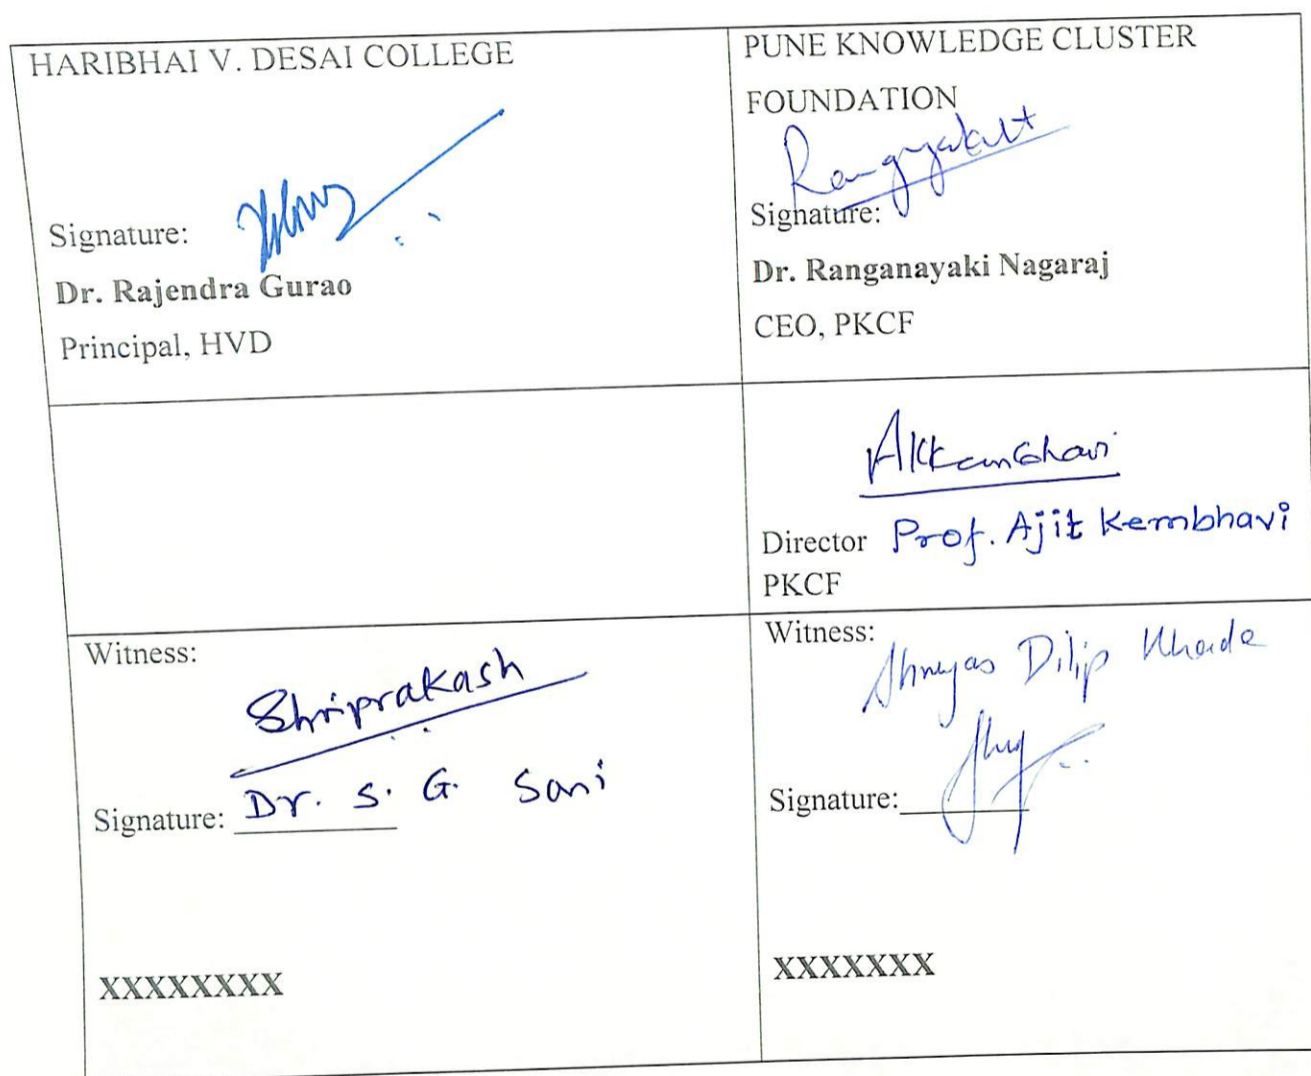 HARIBHAI V. DESAI COLLEGE
Signature:
Dr. Rajendra Gurao
Principal, HVD
PUNE KNOWLEDGE CLUSTER
FOUNDATION
Signature:
Dr. Ranganayaki Nagaraj
CEO, PKCF
AKKembhavi
Director Prof. Ajit Kembhavi
PKCF
Witness:
Shriprakash
Signature: Dr. S. G. Soni
XXXXXXXX
Witness:
Dilip
Signature:
XXXXXXX